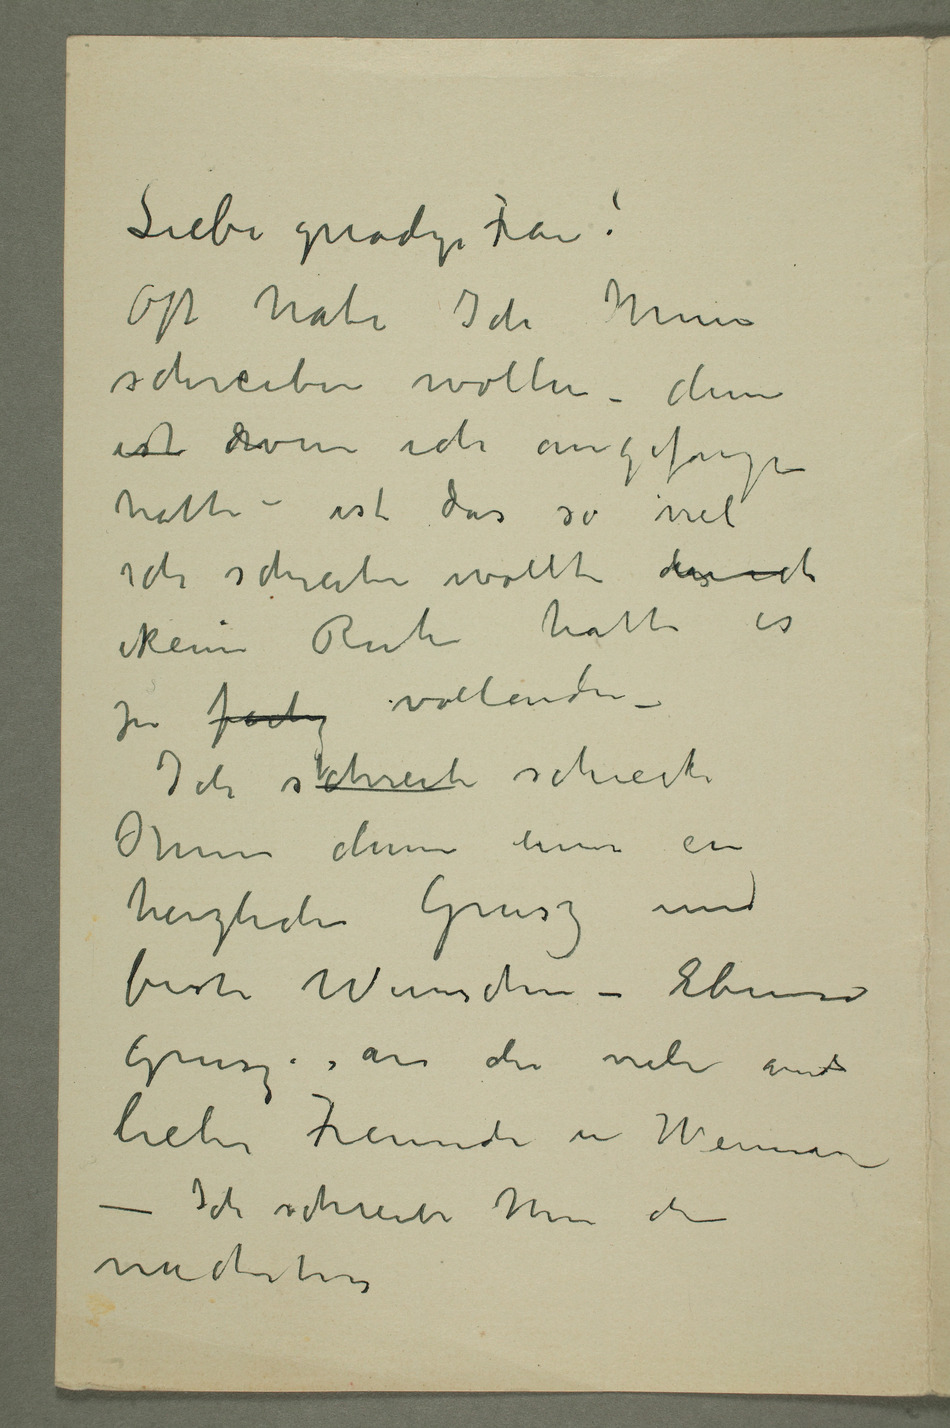 Liebe gnädige Frau!
Oft habe Ich Ihnen
schreiben wollen – denn
ist wenn ich angefangen
hatte – ist das so viel
ich schreiben wollte das ich
keine Ruhe hatte es
zu fertig vollenden –
Ich schreibe schicke
Ihnen denn einen en
herzlichen Grusz und
beste Wünschen – Ebenso
Grusz an die viele and
lieben Freunde in Weimar
— Ich schreibe Ihnen
nächstens